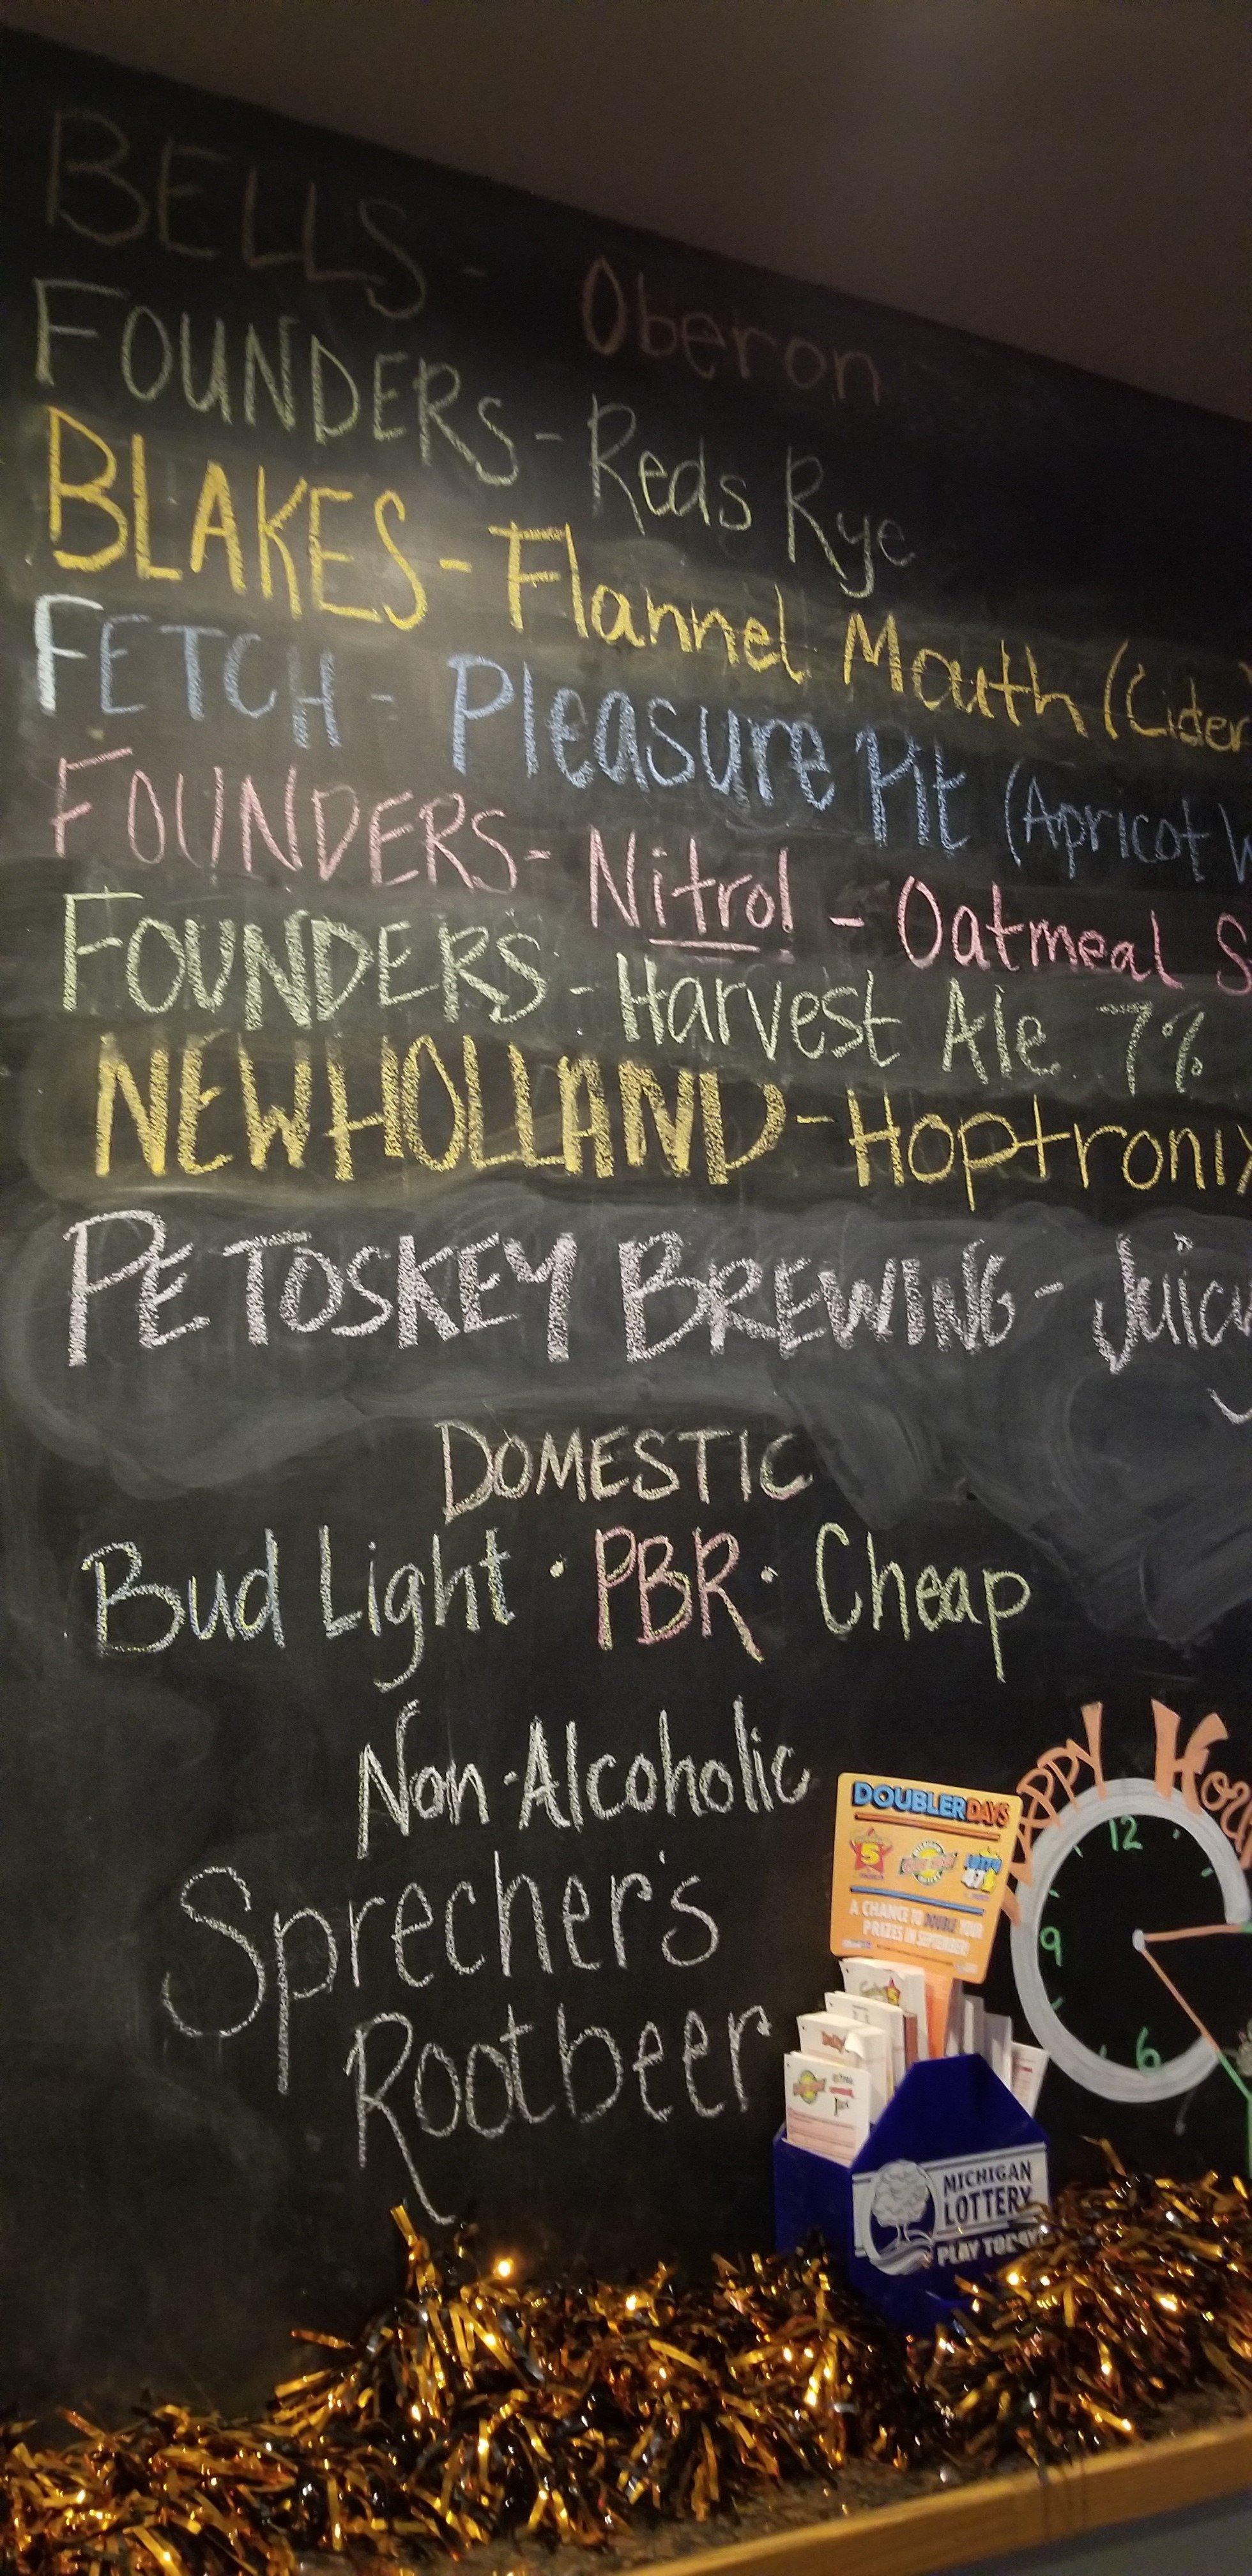 BELLS - Oberon
FOUNDERS - Reds Rye
BLAKES - Flannel Mouth (Cider)
FETCH - Pleasure Pit (Apricot
FOUNDERS - Nitro! - Oatmeal
FOUNDERS - Harvest Ale 7%
NEW HOLLAND - Hoptronix
PETOSKEY BREWING - Juicy
DOMESTIC
Bud Light · PBR · Cheap
Non-Alcoholic
Sprecher's
Rootbeer
HAPPY Hour
12
9
6
DOUBLER DAYS
5
47
A CHANCE TO DOUBLE YOUR
PRIZES IN SEPTEMBER!
MICHIGAN
LOTTERY
PLAY TODAY